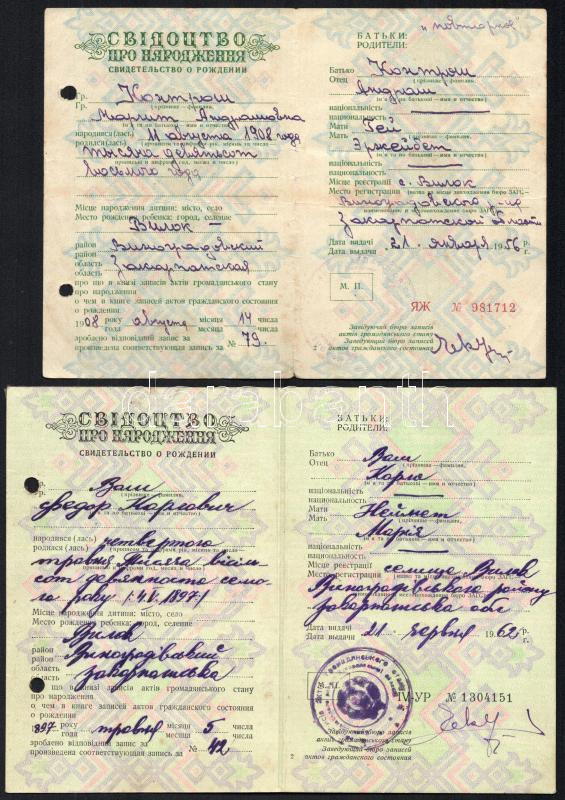 СВІДОЦТВО
ПРО НАРОДЖЕННЯ
СВИДЕТЕЛЬСТВО О РОЖДЕНИИ
Гр. Контрош
Гр. (прізвище — фамилия,
Андрашовна
ім'я та по батькові — имя и отчество)
народився(лась) 11 августа 1908 года
родился(лась)
тысяча девятьсот
восьмого года
Місце народження дитини: місто, село
Место рождения ребенка: город, селение
Вилок
район Виноградовский
область Закарпатская
про що в книзі записів актів громадянського стану
про народження
о чем в книге записей актов гражданского состояния
о рождении
1908 року августа місяця 14 числа
года месяца числа
зроблено відповідний запис за
произведена соответствующая запись за № 79.
"повторное"
БАТЬКИ:
РОДИТЕЛИ:
Батько Контрош
Отец (прізвище — фамилия,
Андраш
ім'я та по батькові — имя и отчество)
національність
национальность
Мати Гей
Мать (прізвище — фамилия,
Эржейбет
ім'я та по батькові — имя и отчество)
національність
национальность
Місце реєстрації с. Вилок
Место регистрации (назва та місце знаходження бюро ЗАГС
Виноградовского р-на
наименование и местонахождение бюро ЗАГС)
Закарпатской области
Дата видачі 21 января 1956 р.
Дата выдачи г.
М. П.
ЯЖ № 981712
Завідуючий бюро записів
актів громадянського стану
Заведующий бюро записей
актов гражданского состояния
2
darabanth
СВІДОЦТВО
ПРО НАРОДЖЕННЯ
СВИДЕТЕЛЬСТВО О РОЖДЕНИИ
Гр. Ваш
Гр. (прізвище — фамилия,
Федор Карлович
ім'я та по батькові — имя и отчество)
народився (лась) четвертого
родился (лась)
травня тисяча вісім-
сот девяносто семо-
го року (4.V.1897)
Місце народження дитини: місто, село
Место рождения ребенка: город, селение
Вилок
район Виноградівський
область закарпатська
про що в книзі записів актів громадянського стану
про народження
о чем в книге записей актов гражданского состояния
о рождении
1897 року травня місяця 5 числа
года месяца числа
зроблено відповідний запис за
произведена соответствующая запись за № 42
БАТЬКИ:
РОДИТЕЛИ:
Батько Ваш
Отец (прізвище — фамилия,
ім'я та по батькові — имя и отчество)
національність
национальность
Мати Неймет
Мать (прізвище — фамилия,
Марія
ім'я та по батькові — имя и отчество)
національність
национальность
Місце реєстрації селище Вилок
Место регистрации
Виноградівського району
закарпатська обл
Дата видачі 21 червня 1962 р.
Дата выдачи г.
IV-УР № 1304151
Завідуючий бюро записів
актів громадянського стану
Заведующий бюро записей
актов гражданского состояния
2